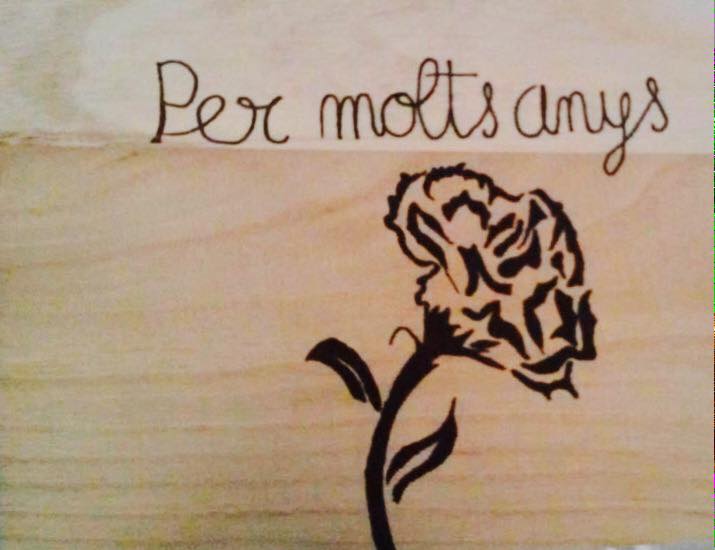 Per molts anys